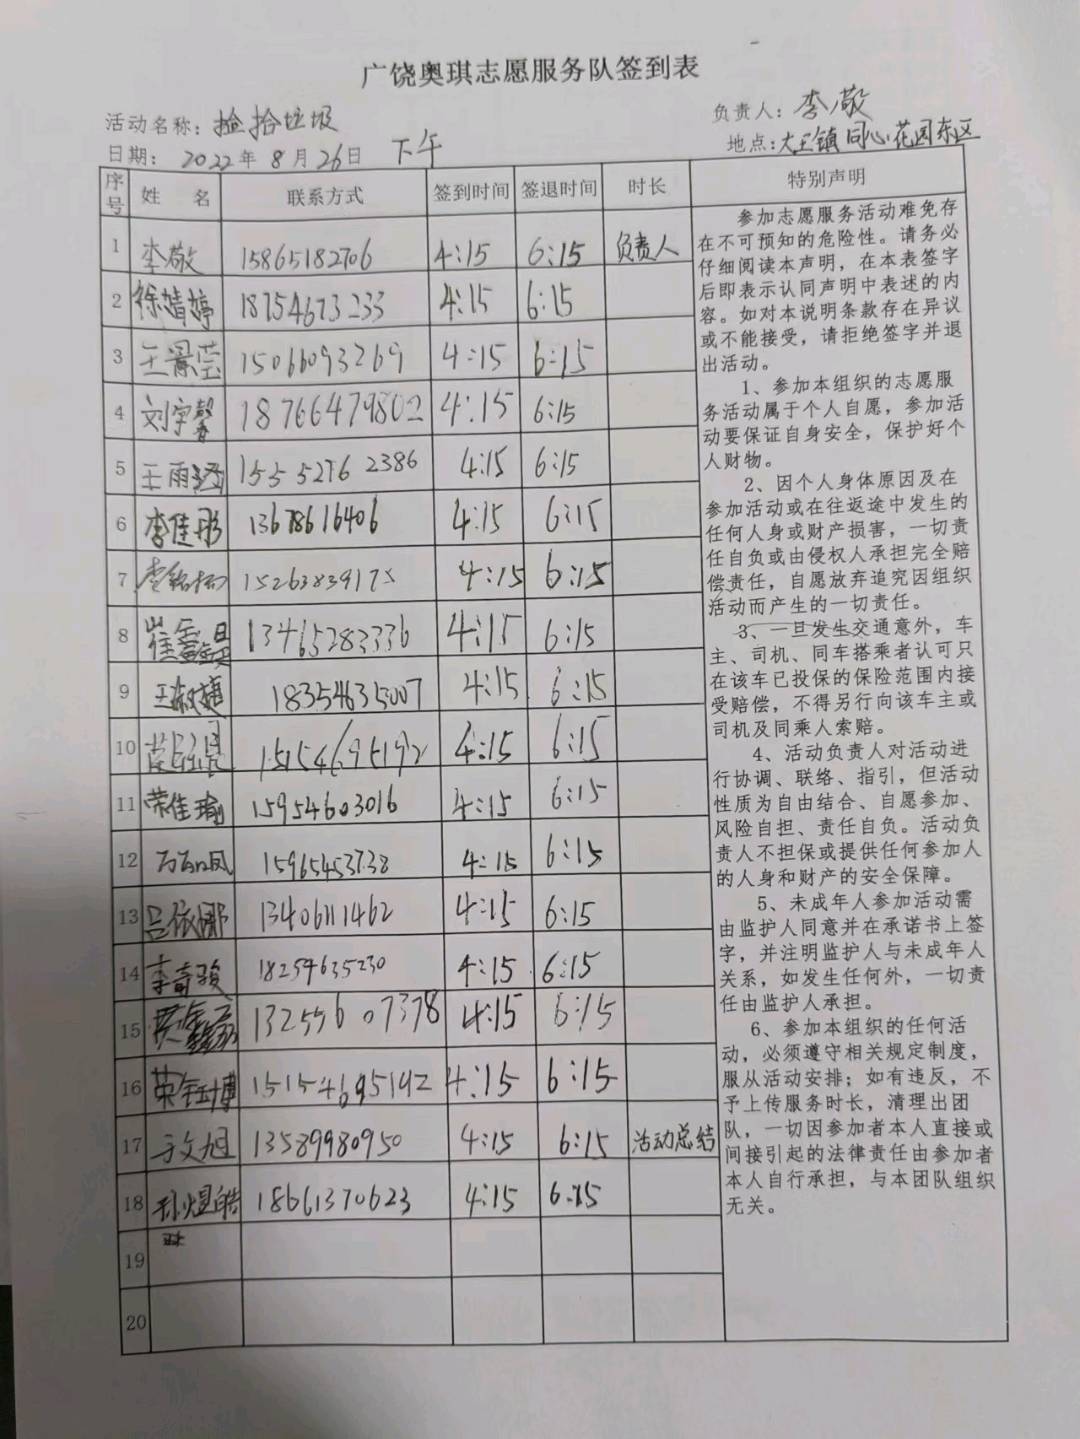 广饶奥琪志愿服务队签到表
活动名称：捡拾垃圾 负责人：李敬
日期：2022年8月26日 下午 地点：大王镇同心花园东区
序号 姓名 联系方式 签到时间 签退时间 时长 特别声明
1 李敬 15865182706 4:15 6:15 负责人
2 徐婧婷 18754673233 4:15 6:15
3 王景莹 15066093269 4:15 6:15
4 刘宇馨 18766479802 4:15 6:15
5 王雨涵 15552762386 4:15 6:15
6 李佳彤 13678616406 4:15 6:15
7 李铭拓 15263839175 4:15 6:15
8 崔 13465283336 4:15 6:15
9 王淑婕 18354635007 4:15 6:15
10 15154695192 4:15 6:15
11 荣佳瑜 15954603016 4:15 6:15
12 15965453738 4:15 6:15
13 吕依娜 13406111462 4:15 6:15
14 李奇骏 18254635230 4:15 6:15
15 4:15 6:15
16 荣钰博 15154695192 4:15 6:15
17 于文旭 13589980950 4:15 6:15 活动总结
18 孙煜皓 18661370623 4:15 6:15
19
20
参加志愿服务活动难免存
在不可预知的危险性。请务必
仔细阅读本声明，在本表签字
后即表示认同声明中表述的内
容。如对本说明条款存在异议
或不能接受，请拒绝签字并退
出活动。
1、参加本组织的志愿服
务活动属于个人自愿，参加活
动要保证自身安全，保护好个
人财物。
2、因个人身体原因及在
参加活动或在往返途中发生的
任何人身或财产损害，一切责
任自负或由侵权人承担完全赔
偿责任，自愿放弃追究因组织
活动而产生的一切责任。
3、一旦发生交通意外，车
主、司机、同车搭乘者认可只
在该车已投保的保险范围内接
受赔偿，不得另行向该车主或
司机及同乘人索赔。
4、活动负责人对活动进
行协调、联络、指引，但活动
性质为自由结合、自愿参加、
风险自担、责任自负。活动负
责人不担保或提供任何参加人
的人身和财产的安全保障。
5、未成年人参加活动需
由监护人同意并在承诺书上签
字，并注明监护人与未成年人
关系，如发生任何外，一切责
任由监护人承担。
6、参加本组织的任何活
动，必须遵守相关规定制度，
服从活动安排；如有违反，不
予上传服务时长，清理出团
队，一切因参加者本人直接或
间接引起的法律责任由参加者
本人自行承担，与本团队组织
无关。